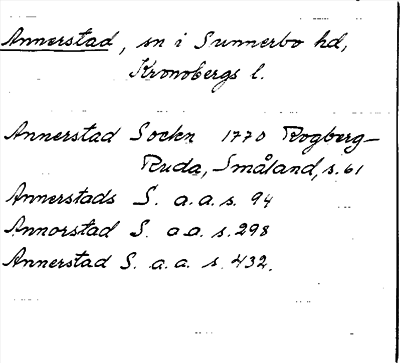 Annerstad, sn i Sunnerbo hd,
Kronobergs l.
Annerstad Sockn 1770 Rogberg-
Ruda, Småland, s. 61
Annerstads S. a.a. s. 94
Annorstad S. a.a. s. 298
Annerstad S. a.a. s. 432.